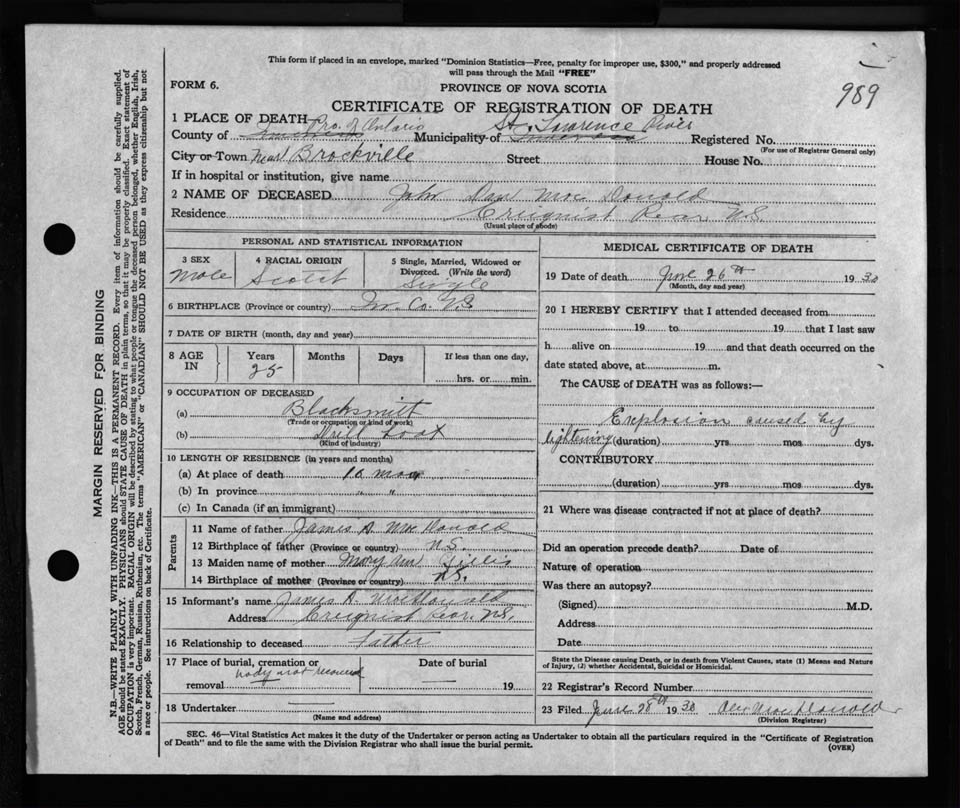 This form if placed in an envelope, marked "Dominion Statistics—Free, penalty for improper use, $300," and properly addressed
will pass through the Mail "FREE"
989
FORM 6.
PROVINCE OF NOVA SCOTIA
CERTIFICATE OF REGISTRATION OF DEATH
1 PLACE OF DEATH Pro. of Ontario St. Lawrence River
County of Municipality of Registered No.
(For use of Registrar General only)
City or Town Near Brockville Street House No.
If in hospital or institution, give name
2 NAME OF DECEASED John Dan Mac Donald
Residence Creignish Rear N.S.
(Usual place of abode)
PERSONAL AND STATISTICAL INFORMATION
3 SEX 4 RACIAL ORIGIN 5 Single, Married, Widowed or
Divorced. (Write the word)
Male Scotch Single
6 BIRTHPLACE (Province or country) In. Co. N.S.
7 DATE OF BIRTH (month, day and year)
8 AGE IN Years Months Days If less than one day,
25 hrs. or min.
9 OCCUPATION OF DECEASED
(a) Blacksmith
(Trade or occupation or kind of work)
(b) Drill boat
(Kind of industry)
10 LENGTH OF RESIDENCE (in years and months)
(a) At place of death 16 mos
(b) In province " "
(c) In Canada (if an immigrant)
Parents
11 Name of father James A. Mac Donald
12 Birthplace of father (Province or country) N.S.
13 Maiden name of mother Mary Ann Gillis
14 Birthplace of mother (Province or country) N.S.
15 Informant's name James A. MacDonald
Address Creignish Rear, N.S.
16 Relationship to deceased Father
17 Place of burial, cremation or Date of burial
removal body not recovered 19
18 Undertaker
(Name and address)
MEDICAL CERTIFICATE OF DEATH
19 Date of death June 26th 1930
(Month, day and year)
20 I HEREBY CERTIFY that I attended deceased from
19 to 19 that I last saw
h alive on 19 and that death occurred on the
date stated above, at m.
The CAUSE of DEATH was as follows:
Explosion caused by
lightening (duration) yrs mos dys.
CONTRIBUTORY
(duration) yrs mos dys.
21 Where was disease contracted if not at place of death?
Did an operation precede death? Date of
Nature of operation
Was there an autopsy?
(Signed) M.D.
Address
Date
State the Disease causing Death, or in death from Violent Causes, state (1) Means and Nature
of Injury, (2) whether Accidental, Suicidal or Homicidal.
22 Registrar's Record Number
23 Filed June 28th 1930 Alex MacDonald
(Division Registrar)
SEC. 46—Vital Statistics Act makes it the duty of the Undertaker or person acting as Undertaker to obtain all the particulars required in the "Certificate of Registration
of Death" and to file the same with the Division Registrar who shall issue the burial permit.
(OVER)
MARGIN RESERVED FOR BINDING
N.B.—WRITE PLAINLY WITH UNFADING INK—THIS IS A PERMANENT RECORD. Every item of information should be carefully supplied.
AGE should be stated EXACTLY. PHYSICIANS should STATE CAUSE OF DEATH in plain terms, so that it may be properly classified. Exact statement of
OCCUPATION is very important. RACIAL ORIGIN will be described by stating to what people or tongue the deceased person belonged, whether English, Irish,
Scotch, French, German, Russian, Ruthenian, etc. The terms "AMERICAN" or "CANADIAN" SHOULD NOT BE USED as they express citizenship but not
a race or people. See instructions on back of Certificate.